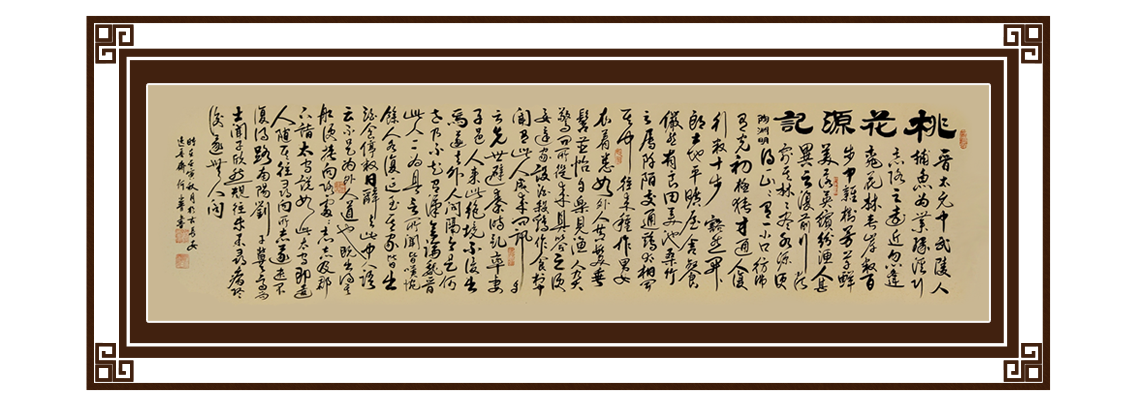 桃花源記
陶淵明
晉太元中武陵人
捕魚為業緣溪行
忘路之遠近忽逢
桃花林夾岸數百
步中雜樹芳草鮮
美落英繽紛漁人甚
異之復前行欲
窮其林林盡水源便
得一山山有小口彷彿
有光初極狹才通人復
行數十步豁然開
朗土地平曠屋舍
儼然有良田美池桑竹
之屬阡陌交通雞犬相聞
其中往來種作男女
衣著悉如外人黃髮垂
髫並怡然自樂見漁人乃大
驚問所從來具答之便
要還家設酒殺雞作食村中
聞有此人咸來問訊自
云先世避秦時亂率妻
子邑人來此絕境不復出
焉遂與外人間隔問今是何
世乃不知有漢無論魏晉
此人一一為具言所聞皆嘆惋
餘人各復延至其家皆出
酒食停數日辭去此中人語
云不足為外人道也既出得其
船便扶向路處處志之及郡
下詣太守說如此太守即遣
人隨其往尋向所志遂迷不
復得路南陽劉子驥高尚
士聞之欣然規往未果尋病終
後遂無人問
秋月於古長安